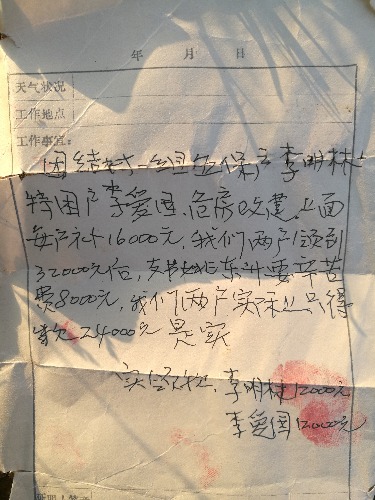 年 月 日
天气状况
工作地点
工作事宜:
团结村一组低保户李明林
特困户李爱国，危房改建，上面
每户补16000元，我们两户领到
32000元后，支书 要辛苦
费8000元，我们两户实际上只得
24000元 是实
李明林12000元
李爱国12000元